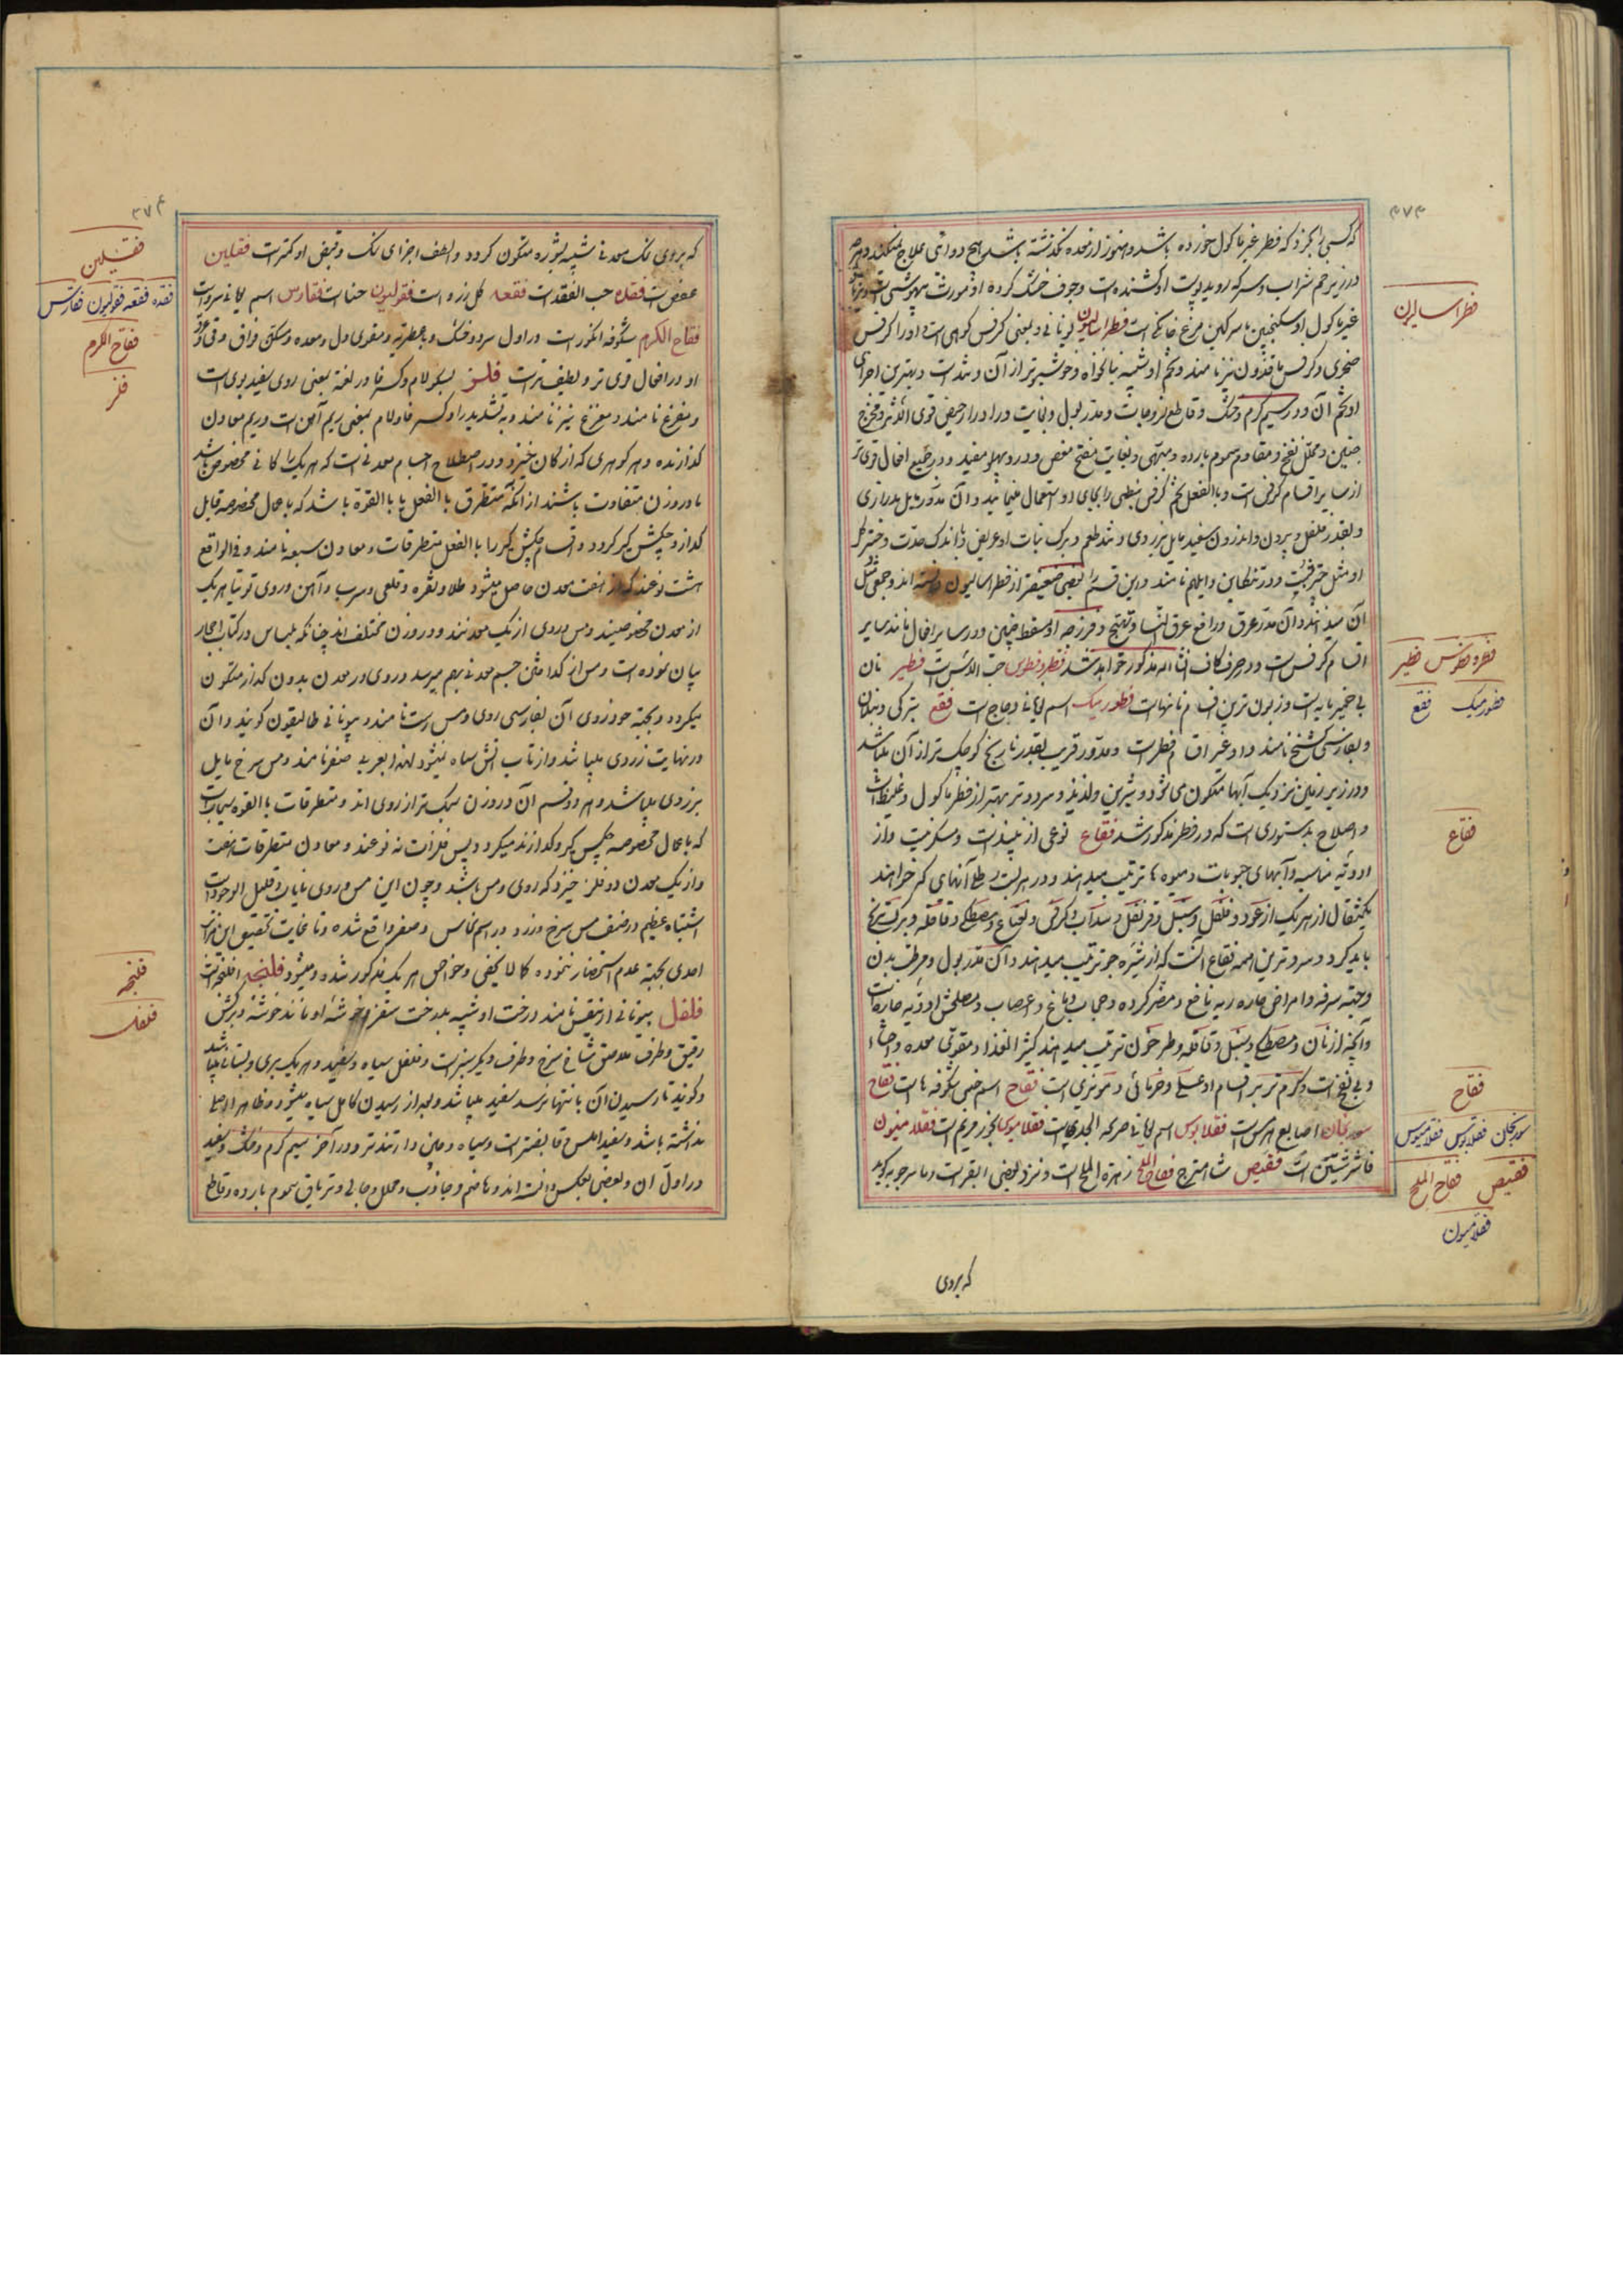 ۴۷۳
که کسی را بگزد که فطر غیر ماکول خورده باشد و هنوز از معده نگذشته باشد هیچ دوائی علاج نمیکند و هر چه
در زیر خم شراب و سرکه روید بوئیدن او کشنده است و جوف خشک کرده او مورث بیهوشی است
غیر ماکول او سکنجبین با سرکین مرغ خانگی است فطراسالیون یونانی و بمعنی کرفس کوهی است و او را کرفس
صخری و کرفس ماقدونی نیز نامند و تخم او شبیه بنانخواه و خوشبوتر از آن و تند است و بهترین اجزای
او تخم آن و در سیم گرم و خشک و قاطع لزوجات و مدر بول و بغایت و ادرار حیض قوی الاثر و مخرج
جنین و محلل نفخ و مقاوم سموم بارده و مبهی و بغایت مفتح مغص و درد پهلو مفید و در جمیع افعال قوی تر
از سایر اقسام کرفس است و بالفعل تخم کرفس نبطی را بجای او استعمال مینمایند و آن مدور مایل بدرازی
و بقدر فلفل و بیرون و اندرون سفید مایل بزردی و تند طعم و برک نبات او عریض و باندک حدت و چتر گل
او مثل چتر شبت و در تنکابن و ایلم نامند و این قسم را بعضی ضعیفتر از فطراسالیون دانسته اند و جمعی مثل
آن میدانند و آن مدر عرق و رافع عرق النسا و تهیج و فرزجه او مسقط جنین و در سایر افعال مانند سایر
اقسام کرفس است و در حرف کاف انشاء الله مذکور خواهد شد فطرونطوس حب الدلس است فطیر نان
بی خمیر مایه است و زبون ترین اقسام نانهاست فطوریک اسم یونانی دجاج است فقع بترکی دنبلان
و بفارسی کشنج نامند و او غیر اقسام فطر است و مدور قریب بقدر نارنج و کوچک تر از آن میباشد
و در زیر زمین نزدیک آبها متکون می شود و شیرین و لذیذ و سرد و تر بهتر از فطر ماکول و غلیظ است
و اصلاح بدستوری است که در فطر مذکور شد فقاع نوعی از نبیذ است و مسکر نیست و از
ادویه مناسبه و آبهای حبوبات و میوه ها ترتیب میدهند و در هر بیست رطل آبهای که خواهند
یکمثقال از هر یک از عود و فلفل و سنبل و قرنفل و سداب و کرفس و نعناع و مصطکی و قاقله و برک ترنج
باید کرد و سردترین همه فقاع آنست که از شیره جو ترتیب میدهند و آن مدر بول و مرطب بدن
و جهة سرفه و امراض حاره ریه نافع و مضر کرده و حجاب دماغ و اعصاب و مصلحش ادویه حاره است
و آنچه از نان و مصطکی و سنبل و قاقله و طرخون ترتیب میدهند کثیر الغذا و مقوی معده و احشاء
و بی نفخ است و گرم تر براقسام او عسلی و خرمائی و مویزی است فقاح اسم جنس شکوفه ها است فقاح
سورنجان اصابع هرمس است فقلابوس اسم یونانی صریمة الجدی است فقلامیوس بخور مریم است فقلامنیون
فاشرشتین است فقیص شاهترج فقاح الملح زهرة الملح است و نزد بعضی ابقر است و ماسرجویه گوید
که بروی
فطراسالیون
فطرونطوس فطیر
فطوریک فقع
فقاع
فقاح
سورنجان فقلابوس فقلامیوس
فقیص فقاح الملح
فقلامنیون
۴۷۴
که بروی نمک معدنی شبیه بشوره متکون گردد و الطف اجزای نمک و قبض او کمتر است فقلین
عفص است فقده حب الفقد است فقعه گل زرد است فقولیون خنثا است فقارس اسم یونانی سرو است
فقاح الکرم شکوفه انگور است در اول سرد و خشک و معطریه و مقوی دل و معده و مسکن فواق و قی
او در افعال قوی تر و لطیف تر است فلز بسکون لام و کسر فا در لغة بمعنی روی سفید بوی است
و مفرغ نامند و مفرغ نیز نامند و به تشدید زا و کسر فا و لام بمعنی ریم آهن است و ریم معادن
گدازنده و هر گوهری که از کان خیزد و در اصطلاح اجسام معدنی است که هر یک را کانی مخصوص باشد
یا در وزن متفاوت باشند از آنکه متطرق بالفعل یا بالقوة باشد که باعمال مخصوصه قابل
گداز و چکش گیر گردد و اقسام چکش گیر را بالفعل متطرقات و معادن سبعه نامند و فی الواقع
هشت نوعند که از هفت معدن حاصل میشود طلا و نقره و قلعی و سرب و آهن و روی توتیا هر یک
از معدن مخصوصیند و مس و روی از یک معدنند و در وزن مختلف اند چنانکه بلیناس در کتاب احجار
بیان نموده است و مس از کدام متن جسم معدنی بهم میرسد و روی در معدن بدون گداز متکون
میگردد و بجهة جوز روی آن بفارسی روی و مس رست نامند و بیونانی طالیقون گویند و آن
در نهایت زردی میباشد و از تاب آتش سیاه نمیشود لهذا بعربی صفر نامند و مس سرخ مایل
بزردی میباشد و هر دو قسم آن در وزن سبک تر از روی اند و متطرقات بالقوه سیماب است
که باعمال مخصوصه چکش گیر و گدازنده میگردد پس فلزات نه نوعند و معادن متطرقات هفت
و از یک معدن دو فلز خیزد که روی و مس باشد و چون این مس و روی نایاب و قلیل الوجود است
اشتباه عظیم در صنف مس سرخ و زرد در اسم نحاس و صفر واقع شده و تا غایت تحقیق این مراتب
احدی بجهة عدم استحضار ننموده کما لا یخفی و خواص هر یک مذکور شده و میشود فلنجه افلنجه است
فلفل بیونانی ارنیقس نامند درخت او شبیه بدرخت سقز و خوشه او مانند خوشه و برگش
رقیق و طرف ملاصق شاخ سرخ و طرف دیگر سبز است و فلفل سیاه و سفید و هر یک بری و بستانی میباشد
و گویند تا رسیدن آن بانتها نرسد سفید میباشد و بعد از رسیدن کامل سیاه میشود و ظاهرا اصلی
نداشته باشد و سفید املس و قابض تر است و سیاه و چین دار تندتر و در آخر سیم گرم و خشک و سفید
در اول آن و بعضی بعکس دانسته اند و هاضم و جاذب و محلل و جالی و تریاق سموم بارده و قاطع
فقلین
فقده فقعه فقولیون فقارس
فقاح الکرم
فلز
فلنجه
فلفل